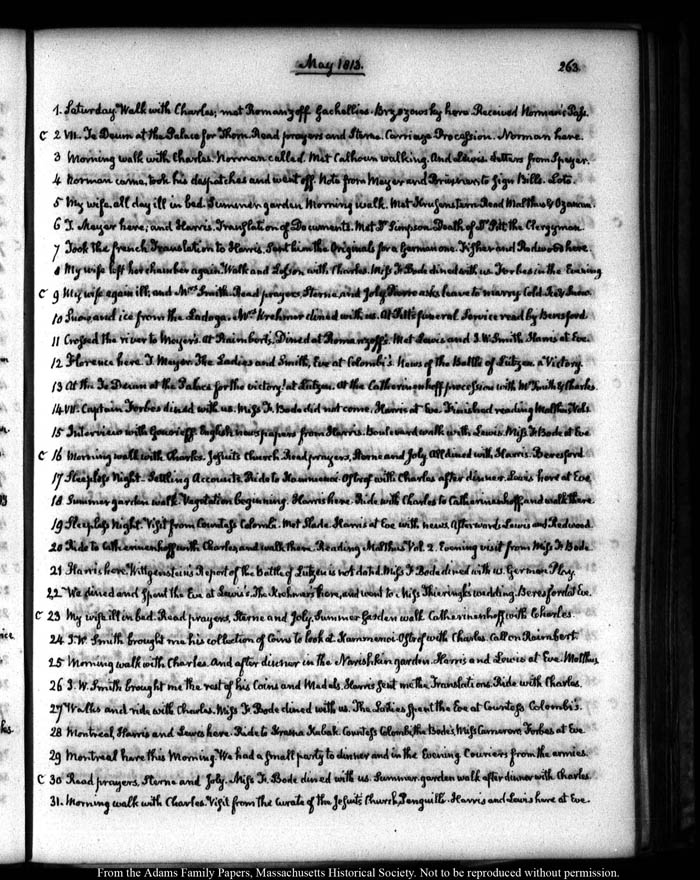 May 1813.
263
1. Saturday. Walk with Charles; met Romanzoff. Gachellies. Brzozowsky here. Received Norman's Pass.
C 2 VII. Te Deum at the Palace for Thorn. Read prayers and Sterne. Carriage Procession. Norman here.
3 Morning walk with Charles. Norman called. Met Calhoun walking. And Lewis. Letters from Speyer.
4 Norman came, took his despatches and went off. Note from Meyer and Brüxner, to sign Bills. Loto.
5 My wife, all day ill in bed. Summer garden Morning walk. Met Krusenstern. Read Malthus &
6 T. Meyer here; and Harris. Translation of Documents. Met Dr Simpson. Death of Dr Pitt the Clergyman.
7 Took the french Translation to Harris. Sent him the Originals for a German one. Fisher and Redwood here.
8 My wife left her chamber again. Walk and Lesson with Charles. Miss Fr. Bode dined with us. Forbes in the Evening
C 9 My wife again ill; and Mrs Smith. Read prayers, Sterne, and Joly. asks leave to marry. Cold. Ice. Snow.
10 Snow and ice from the Ladoga. Mrs Krehmer dined with us. At Pitt's funeral Service read by Beresford
11 Crossed the river to Meyer's. At Raimbert's, Dined at Romanzoff's. Met Lewis and J. W. Smith. Harris at Eve.
12 Florence here. T. Meyer. The Ladies and Smith, Eve at Colombi's. News of the Battle of Lützen. a Victory.
13 At the Te Deum at the Palace for the victory! at Lützen. At the Catherinenhoff procession with W Smith & Charles.
14 VII. Captain Forbes dined with us. Miss Fr. Bode did not come. Harris at Eve. Finished reading Malthus, Vol. 1.
15 Interview with Gourieff. English newspapers from Harris. Boulevard walk with Lewis. Miss Fr Bode at Eve
C 16 Morning walk with Charles. Jesuits Church. Read prayers, Sterne and Joly. All dined with Harris. Beresford
17 Sleepless Night. Settling Accounts. Ride to Kammenoi-Ostrof with Charles after dinner. Lewis here at Eve
18 Summer garden walk. Vegetation beginning. Harris here. Ride with Charles to Catherinenhoff, and walk there
19 Sleepless Night. Visit from Countess Colombi. Met Slade. Harris at Eve with news. Afterwards Lewis and Redwood.
20 Ride to Catherinenhoff with Charles, and walk there. Reading Malthus Vol. 2. Evening visit from Miss Fr Bode
21 Harris here. Wittgenstein's Report of the battle of Lützen is not dated. Miss F. Bode dined with us. German Play.
22 We dined and Spent the Eve at Lewis's. The Krehmers there, and went to Miss Thiering's wedding. Beresford at Eve.
C 23 My wife ill in bed. Read prayers, Sterne and Joly. Summer Garden walk. Catherinenhoff with Charles.
24 J. W. Smith brought me his collection of Coins to look at. Kammenoi-Ostrof with Charles. Call on Raimbert.
25 Morning walk with Charles. And after dinner in the Narishkin garden. Harris and Lewis at Eve. Malthus,
26 J. W. Smith brought me the rest of his Coins and Medals. Harris sent me the Translations. Ride with Charles.
27 Walks and ride with Charles. Miss Fr. Bode dined with us. The Ladies Spent the Eve at Countess Colombi's.
28 Montreal, Harris and Lewis here. Ride to Krasna Kabak. Countess Colombi, the Bode's, Miss Cameron & Forbes at Eve
29 Montreal here this Morning. We had a small party to dinner and in the Evening. Couriers from the armies.
C 30 Read prayers, Sterne and Joly. Miss Fr. Bode dined with us. Summer garden walk after dinner with Charles
31. Morning walk with Charles. Visit from the Curate of the Jesuits Church, Penguilli. Harris and Lewis here at Eve.
From the Adams Family Papers, Massachusetts Historical Society. Not to be reproduced without permission.